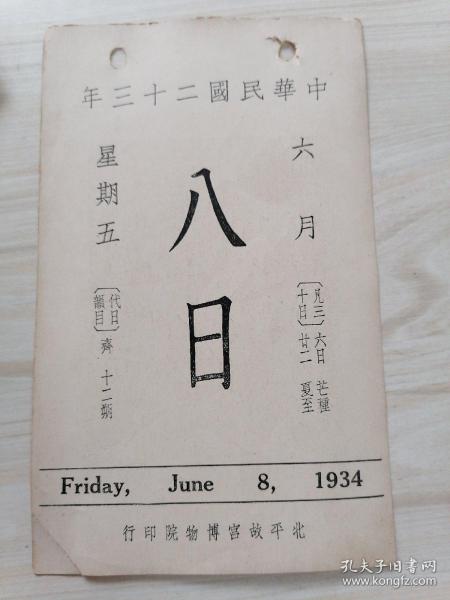 中華民國二十三年
六月
八日
星期五
〔凡三十日〕
六日 芒種
廿二 夏至
〔代日韻目〕齊 十二朔
Friday, June 8, 1934
北平故宮博物院印行
孔夫子旧书网
www.kongfz.com